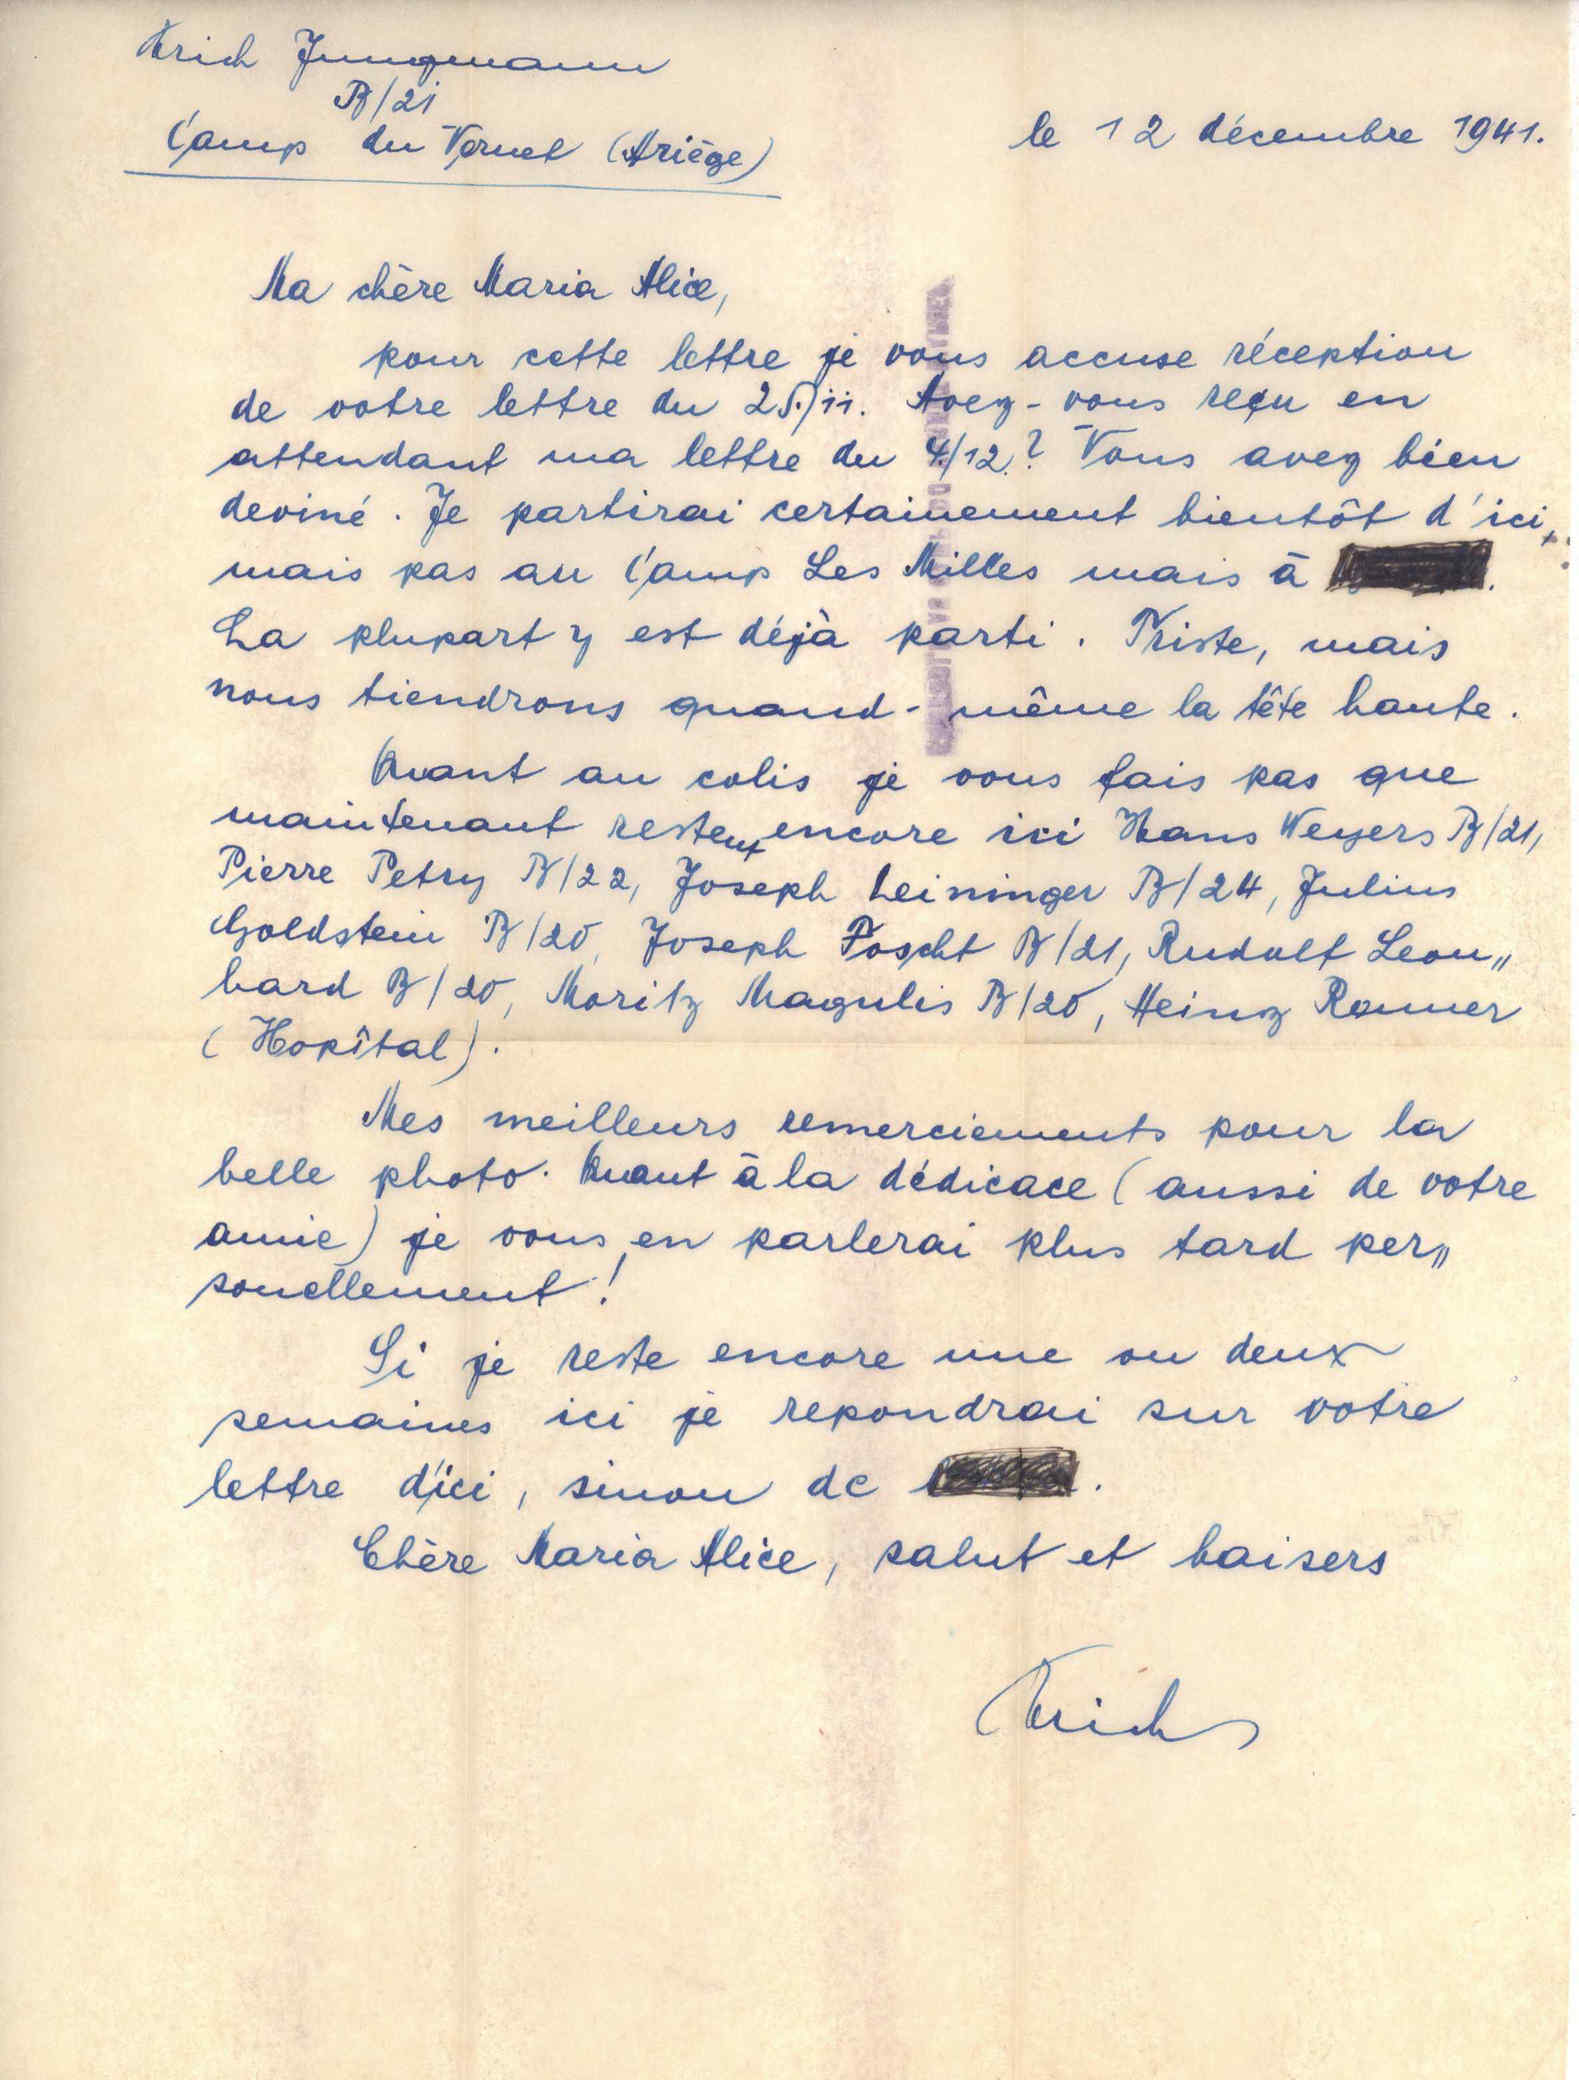 Erich Jungmann
B/21
Camp du Vernet (Ariège)
le 12 décembre 1941.
Ma chère Maria Alice,
pour cette lettre je vous accuse réception
de votre lettre du 25./11. Avez-vous reçu en
attendant ma lettre du 4./12.? Vous avez bien
deviné. Je partirai certainement bientôt d'ici,
mais pas au Camp Les Milles mais à
La plupart y est déjà parti. Triste, mais
nous tiendrons quand-même la tête haute.
Quant au colis je vous fais pas que
maintenant restent encore ici Hans Weyers B/21,
Pierre Petry B/22, Joseph Leininger B/24, Julius
Goldstein B/20, Joseph Foscht B/21, Rudolf Leon„
hard B/20, Moritz Magulis B/20, Heinz Renner
(Hopîtal).
Mes meilleurs remerciements pour la
belle photo. Quant à la dédicace (aussi de votre
amie) je vous en parlerai plus tard per„
sonellement!
Si je reste encore une ou deux
semaines ici je repondrai sur votre
lettre d'ici, sinon de
Chère Maria Alice, salut et baisers
Erich